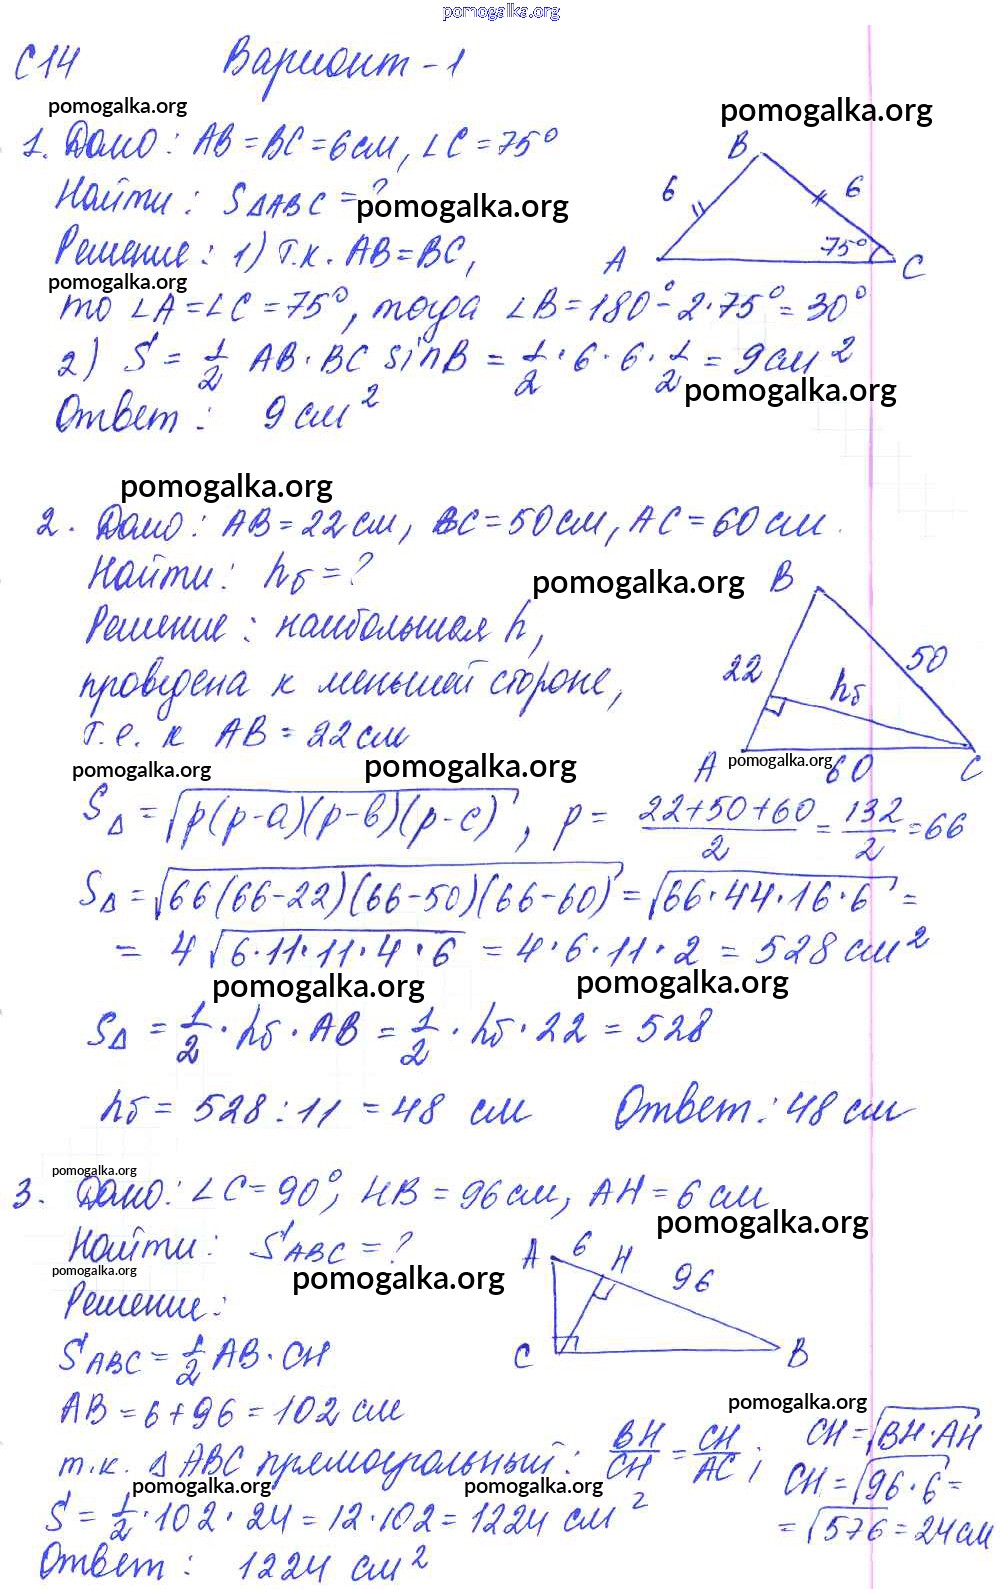 pomogalka.org
С14 Вариант-1
pomogalka.org pomogalka.org
1. Дано: AB=BC=6см, ∠C=75°
B
6 6
75°
A C
Найти: S△ABC=?
pomogalka.org
Решение: 1) т.к. AB=BC,
pomogalka.org
то ∠A=∠C=75°, тогда ∠B=180°-2·75°=30°
2) S = 1/2 AB·BC sinB = 1/2·6·6·1/2 = 9см²
pomogalka.org
Ответ: 9см²
pomogalka.org
2. Дано: AB=22см, BC=50см, AC=60см.
Найти: hб=?
pomogalka.org
B
22 50
hб
A 60 C
Решение: наибольшая h,
проведена к меньшей стороне,
т.е. к AB=22см
pomogalka.org pomogalka.org pomogalka.org
S△ = √p(p-a)(p-b)(p-c), p = (22+50+60)/2 = 132/2 = 66
S△ = √66(66-22)(66-50)(66-60) = √66·44·16·6 =
= 4√6·11·11·4·6 = 4·6·11·2 = 528 см²
pomogalka.org pomogalka.org
S△ = 1/2·hб·AB = 1/2·hб·22 = 528
hб = 528:11 = 48 см Ответ: 48см
pomogalka.org
3. Дано: ∠C=90°, HB=96см, AH=6см
pomogalka.org
Найти: S ABC=?
pomogalka.org pomogalka.org
A 6 H
96
C B
Решение:
S ABC = 1/2 AB·CH
AB=6+96=102см
pomogalka.org
т.к. △ABC прямоугольный: BH/CH = CH/AC;
CH=√BH·AH
pomogalka.org pomogalka.org
CH=√96·6=
=√576=24см
S = 1/2·102·24=12·102=1224 см²
Ответ: 1224 см²